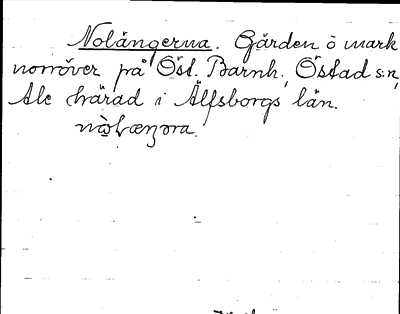 Nolängerna. Gärden o mark
norröver på Öst. Barnh., Östad s:n,
Ale härad i Älfsborgs län.